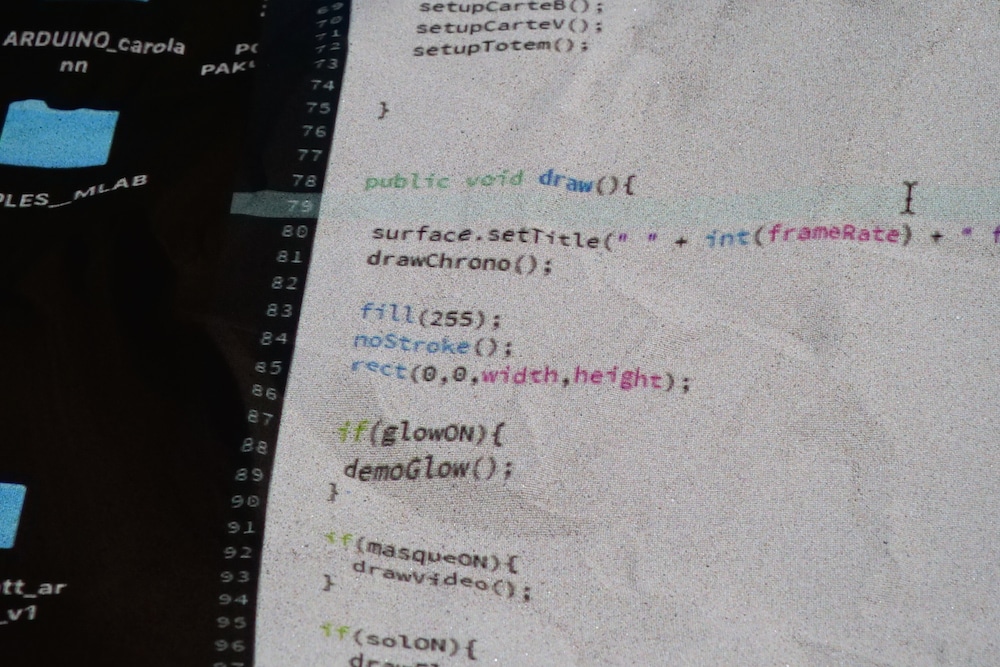 ARDUINO_carola
nn
PLES_MLAB
tt_ar
_v1
69
70 setupCarteB();
71 setupCarteV();
72 setupTotem();
73
74
75 }
76
77
78 public void draw(){
79
80 surface.setTitle(" " + int(frameRate) + " f
81 drawChrono();
82
83 fill(255);
84 noStroke();
85 rect(0,0,width,height);
86
87
88 if(glowON){
89 demoGlow();
90 }
91
92 if(masqueON){
93 drawVideo();
94 }
95
96 if(solON){
97